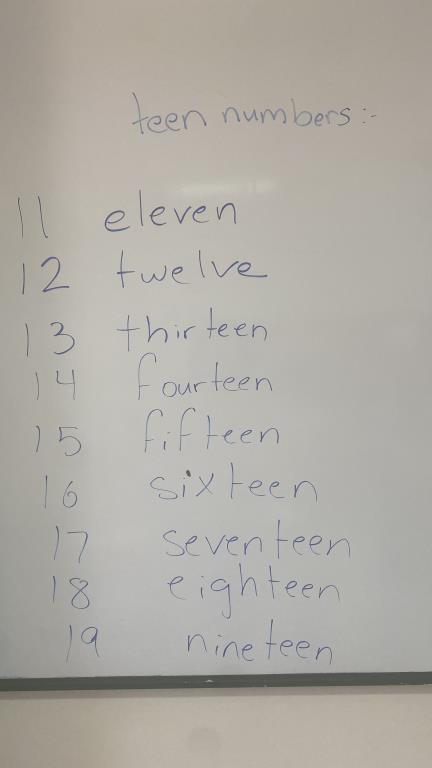 teen numbers :-
11 eleven
12 twelve
13 thirteen
14 fourteen
15 fifteen
16 sixteen
17 seventeen
18 eighteen
19 nineteen